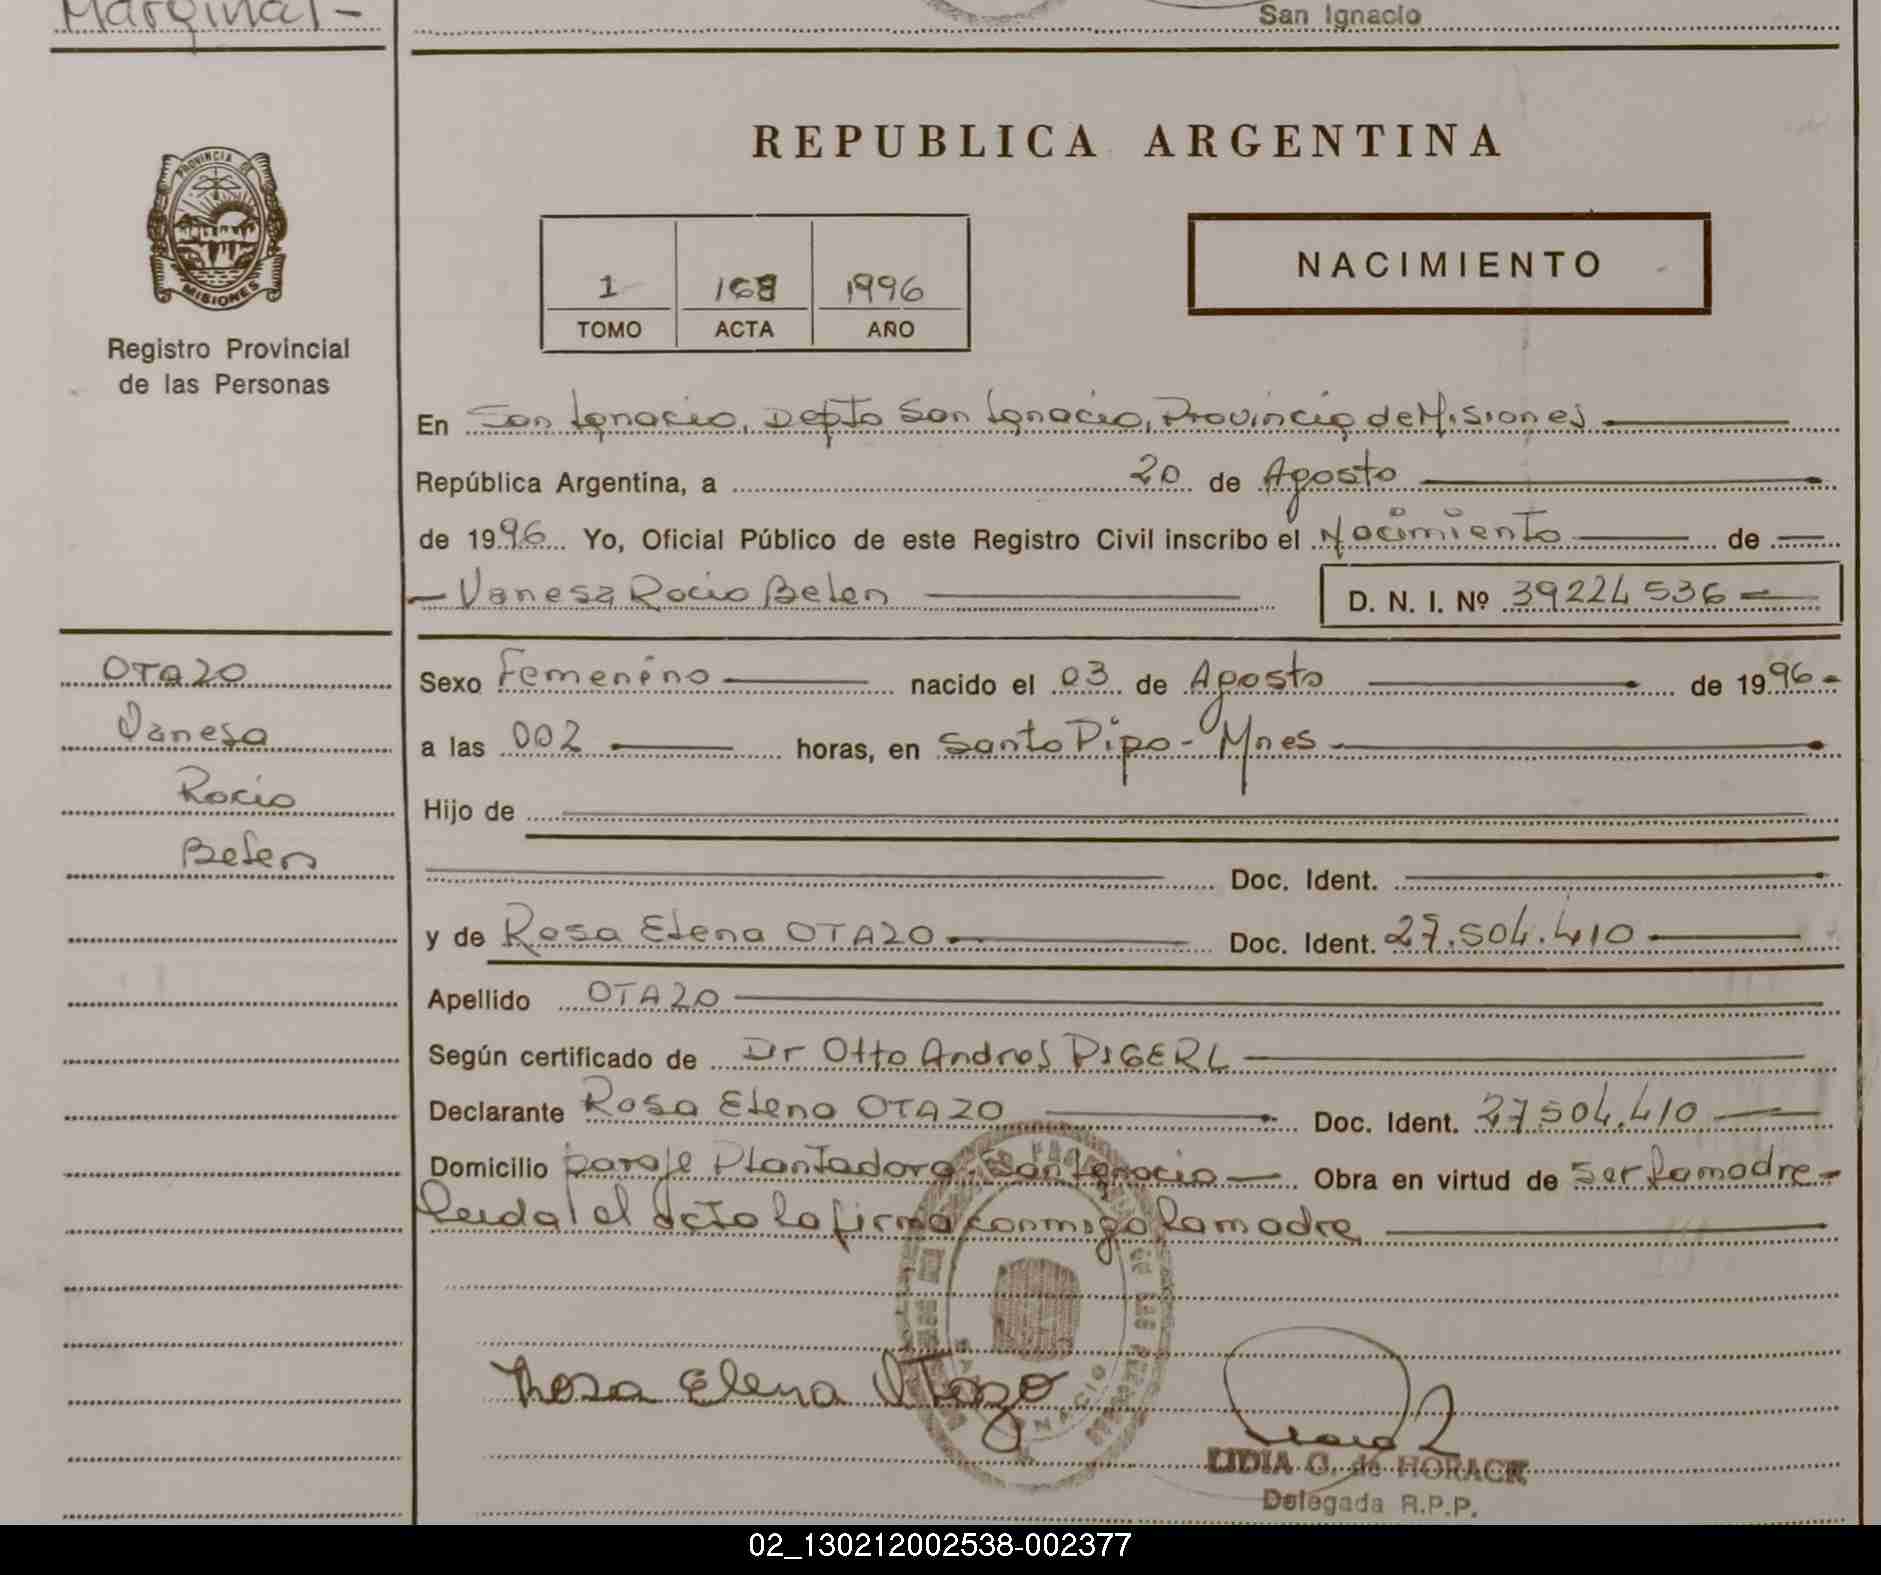 Marginal -
San Ignacio
PROVINCIA DE
MISIONES
Registro Provincial
de las Personas
REPUBLICA ARGENTINA
1 1996
TOMO ACTA AÑO
NACIMIENTO
En San Ignacio, Depto San Ignacio, Provincia de Misiones
República Argentina, a 20 de Agosto
de 1996 Yo, Oficial Público de este Registro Civil inscribo el Nacimiento de
Vanesa Rocio Belen D. N. I. Nº 39224536
OTAZO
Vanesa
Rocio
Belen
Sexo Femenino nacido el 03 de Agosto de 1996
a las 002 horas, en Santo Pipo - Mnes
Hijo de
Doc. Ident.
y de Rosa Elena OTAZO Doc. Ident. 27.504.410
Apellido OTAZO
Según certificado de Dr Otto Andres PIGERL
Declarante Rosa Elena OTAZO Doc. Ident. 27.504.410
Domicilio paraje Plantadora, San Ignacio Obra en virtud de ser la madre
leida el acto la firma conmigo la madre
Rosa Elena Otazo
LIDIA C. de HORACK
Delegada R.P.P.
02_130212002538-002377